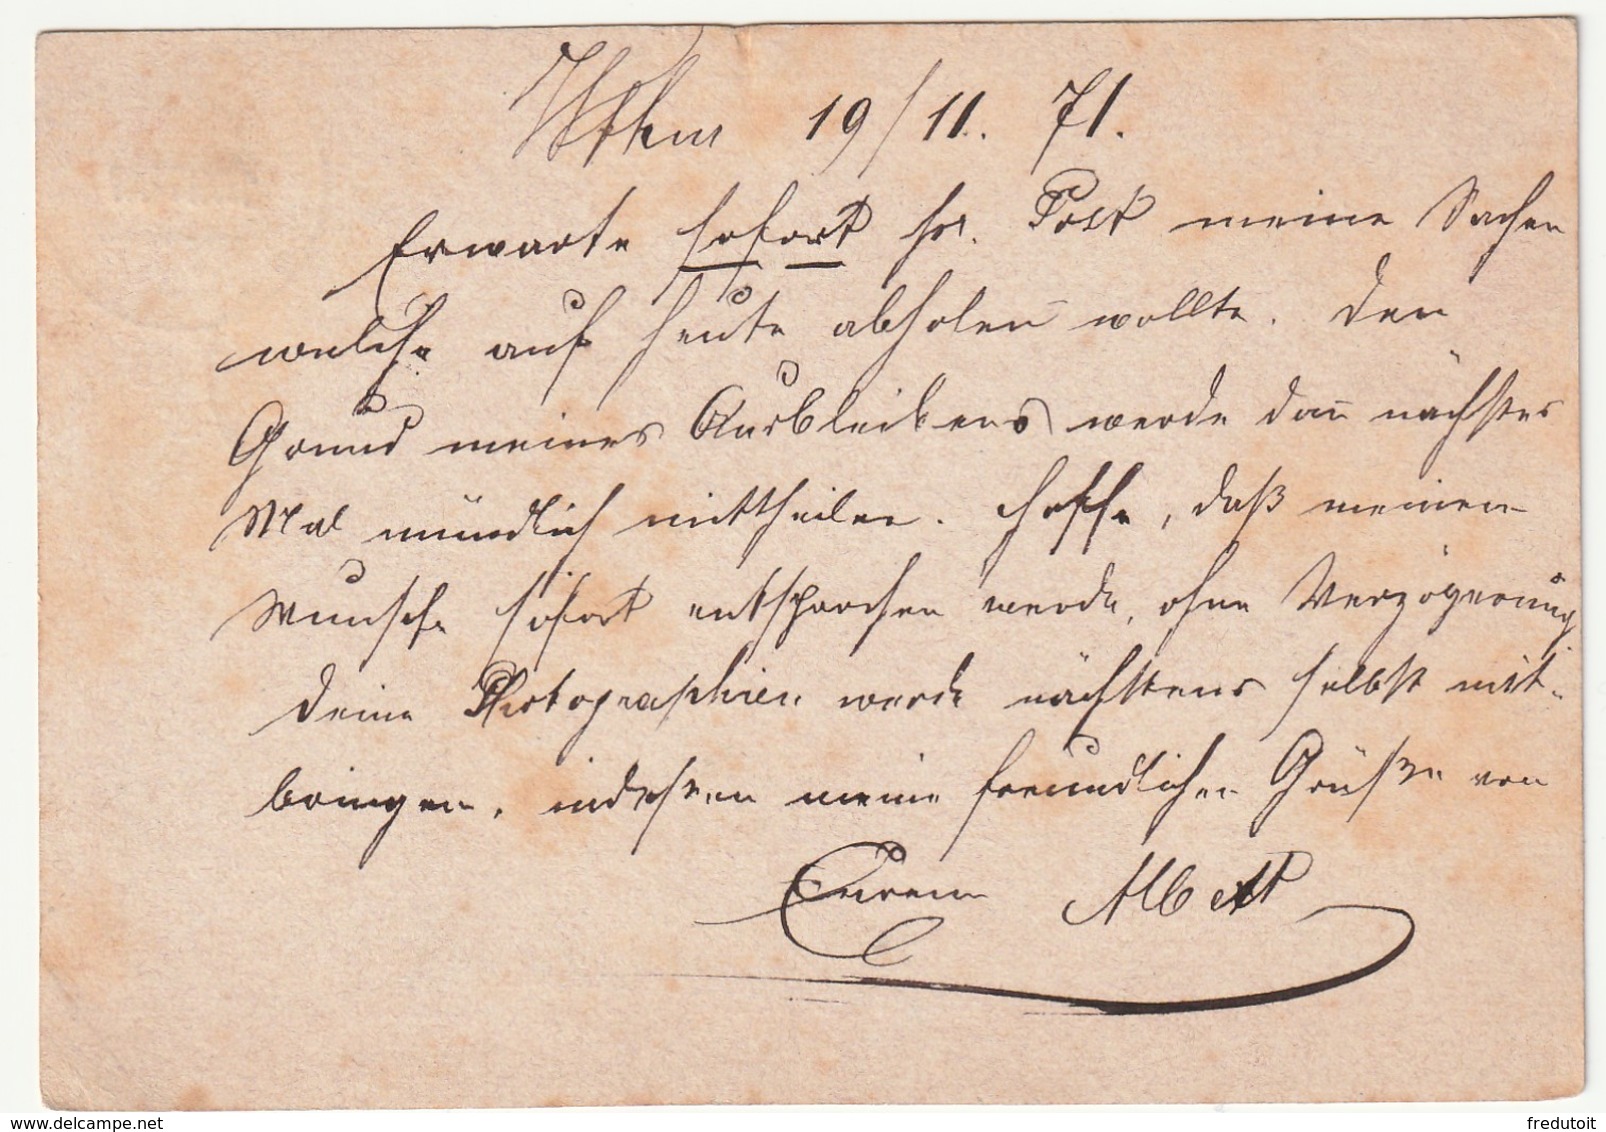 19/11. 71.
Erwarte sofort pr. Post meine Sachen
welche auf heute abholen wollte. Den
Grund meines Ausbleibens werde dan̄ nächstes
Mal mündlich mittheilen. Hoffe, daß meinem
Wunsche sofort entsprochen werde, ohne Verzögerung
Deine Photographien werde nächstens selbst mit-
bringen, indessen meine freundlichen Grüße von
Eurem Albert
delcampe.net
fredutoit